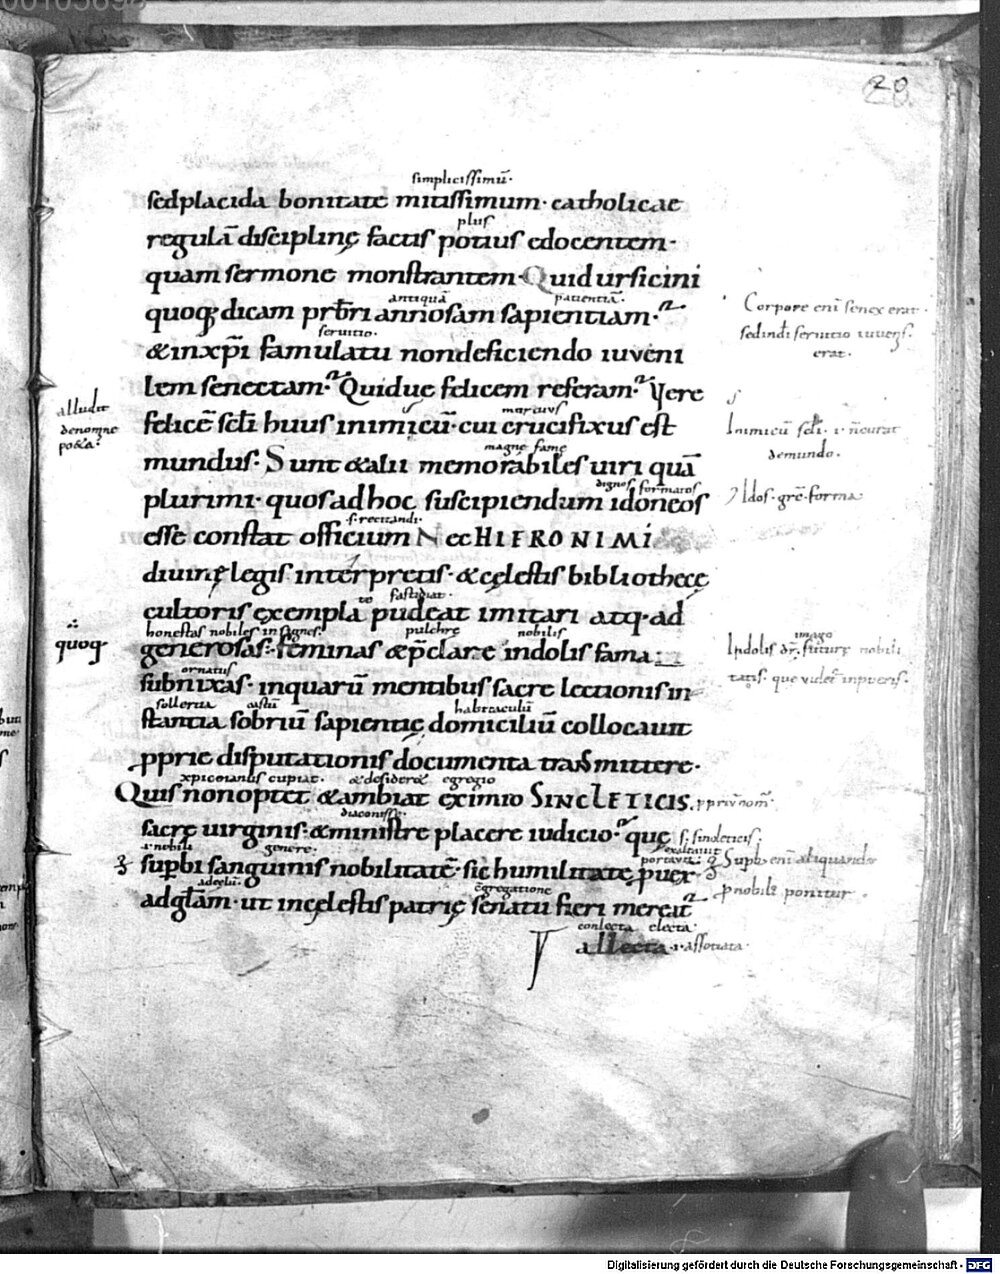 20
simplicissimū·
sed placida bonitate mitissimum· catholicae
plus
regulā disciplinę factis potius edocentem·
quam sermone monstrantem· Quid ursicini
antiquā patientiā·
quoq; dicam prb̄ri annosam sapientiam·
seruitio·
& in xp̄i famulatu non deficiendo iuueni
lem senectam· Quid uę felicem referam· Vere
marcius
felicē sc̄li huius inimicū· cui crucifixus est
magne fame
mundus· Sunt & alii memorabiles uiri quā
dignos formatos
plurimi· quos ad hoc suscipiendum idoneos
s· recitandi·
esse constat officium Nec HIERONIMI
diuinę legis interpretis· & cęlestis bibliothecę
fastidiat·
cultoris exempla pudeat imitari atq· ad
honestas nobiles insignes· pulchre nobilis
generosas· feminas & p̄clare indolis fama
ornatus
subnixas· in quarū mentibus sacre lectionis in
sollertia castū habitaculū
stantia sobriū sapientię domiciliū collocauit
pprie disputationis documenta transmittere·
cupiat· & desider& egregio
Quis non optet & ambiat eximio SINCLETICIS
pprīu nom̄·
diaconisse·
sacrę uirginis· & ministre placere iudicio· quę
s· sincleticis·
i· nobili genere· exaltauit portauit
supbi sanguinis nobilitatē· sic humilitate puex
ad celū· cgregatione
ad gl̄am· ut in cęlestis patrię senatu fieri mereat̄
conlecta electa·
allecta· i· assotiata·
alludit
de nomine
po&a·
quoq·
Corpore eni senex erat·
sed in di seruitio iuuenis·
erat·
Inimicū sc̄li· i· n̄ curat
de mundo·
Idos· gre· forma
imago
Indolis dr̄· future nobili
tatis· que uidet̄ in pueris·
Supb eni aliquando
p nobili ponitur·
Digitalisierung gefördert durch die Deutsche Forschungsgemeinschaft - DFG